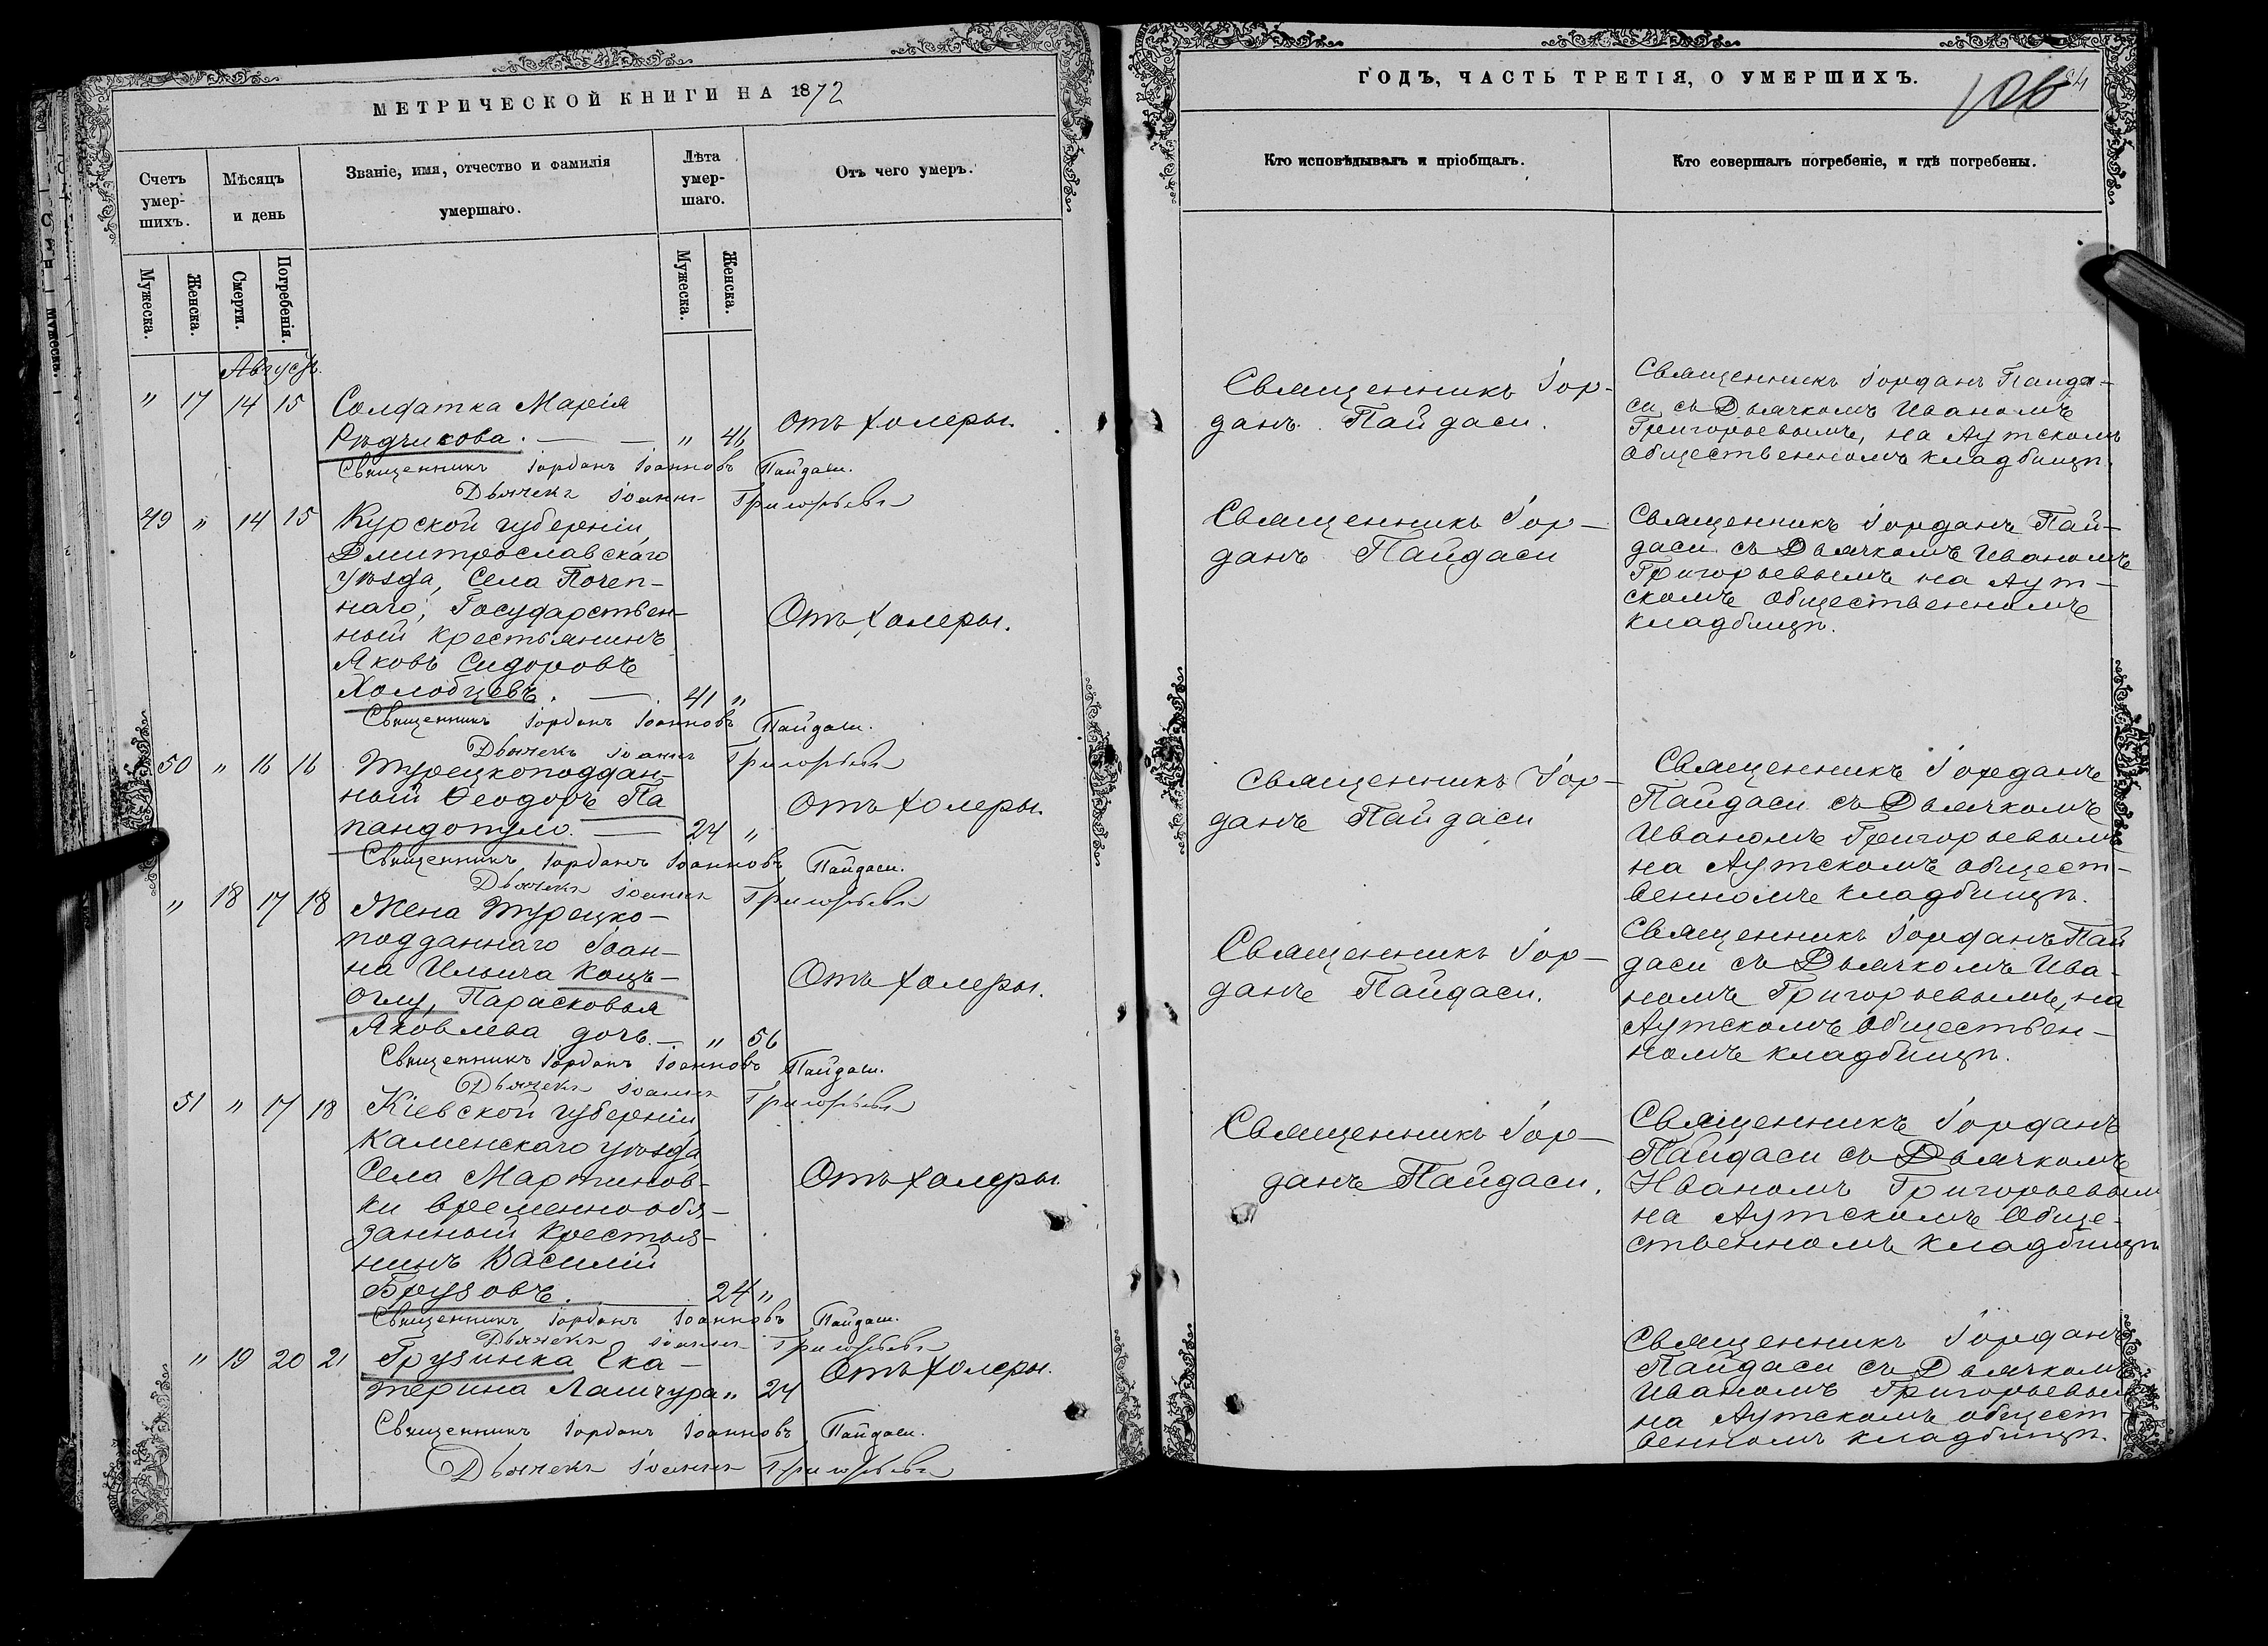 МЕТРИЧЕСКОЙ КНИГИ НА 1872
Счетъ умер-шихъ.
Мѣсяцъ и день
Званіе, имя, отчество и фамилія умершаго.
Лѣта умер-шаго.
Отъ чего умеръ.
Мужеска.
Женска.
Смерти.
Погребенія.
Мужеска.
Женска.
Августъ.
" 17 14 15 Солдатка Марія
Рѣдчикова. — — " 46 Отъ холеры.
Священникъ Іорданъ Іоанновъ Пайдаси.
Дьячекъ Іоаннъ Григорьевъ
49 " 14 15 Курской губерніи
Дмитрославскаго
уѣзда, Села Почеп-
наго, Государствен-
ный крестьянинъ
Яковъ Сидоровъ
Холобцевъ. — 41 " Отъ холеры.
Священникъ Іорданъ Іоанновъ Пайдаси.
Дьячекъ Іоаннъ Григорьевъ
50 " 16 16 Турецкоподдан-
ный Ѳеодоръ Па
пандопуло. — 24 " Отъ холеры.
Священникъ Іорданъ Іоанновъ Пайдаси.
Дьячекъ Іоаннъ Григорьевъ
" 18 17 18 Жена Турецко-
подданнаго Іоан-
на Ильича Коцъ-
оглу, Парасковья
Яковлева дочь. — " 56 Отъ холеры.
Священникъ Іорданъ Іоанновъ Пайдаси.
Дьячекъ Іоаннъ Григорьевъ
51 " 17 18 Кіевской губерніи
Каменскаго уѣзда
Села Мартинов-
ки временнообя-
занный Крестья-
нинъ Василій
Брузовъ. — 24 " Отъ холеры
Священникъ Іорданъ Іоанновъ Пайдаси.
Дьячекъ Іоаннъ Григорьевъ
" 19 20 21 Грузинка Ека-
терина Лашчура " 24 Отъ холеры.
Священникъ Іорданъ Іоанновъ Пайдаси.
Дьячекъ Іоаннъ Григорьевъ
ГОДЪ, ЧАСТЬ ТРЕТІЯ, О УМЕРШИХЪ.
Кто исповѣдывалъ и пріобщалъ.
Кто совершалъ погребеніе, и гдѣ погребены.
Священникъ Іор-
данъ Пайдаси.
Священникъ Іорданъ Пайда-
си съ Дьячкомъ Иваномъ
Григорьевымъ, на Аутскомъ
Общественномъ кладбищѣ.
Священникъ Іор-
данъ Пайдаси
Священникъ Іорданъ Пай-
даси съ Дьячкомъ Иваномъ
Григорьевымъ на Аут-
скомъ Общественномъ
кладбищѣ.
Священникъ Іор-
данъ Пайдаси
Священникъ Іорданъ
Пайдаси съ Дьячкомъ
Иваномъ Григорьевымъ
на Аутскомъ общест-
венномъ кладбищѣ.
Священникъ Іор-
данъ Пайдаси.
Священникъ Іорданъ Пай
даси съ Дьячкомъ Ива-
номъ Григорьевымъ, на
Аутскомъ Обществен-
номъ кладбищѣ.
Священникъ Іор-
данъ Пайдаси.
Священникъ Іорданъ
Пайдаси съ Дьячкомъ
Иваномъ Григорьевым
на Аутскомъ Обще-
ственномъ кладбищѣ
Священникъ Іорданъ
Пайдаси съ Дьячкомъ
Иваномъ Григорьевым
на Аутскомъ общест
венномъ кладбищѣ.